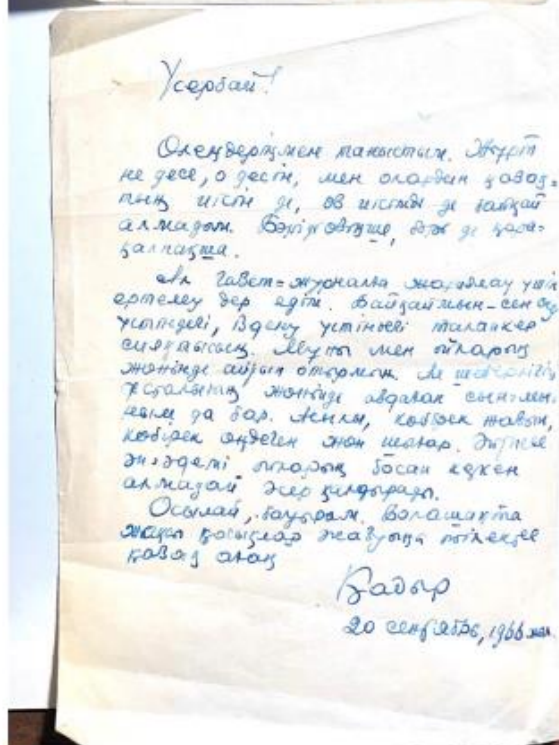 Үсербай!
Өлеңдеріңмен таныстым. Жұрт
не десе, о десін, мен олардан қазақ-
тың иісін де, өз иісіңді де байқай
алмадым. Бәрі де қара-
қалпақша.
Ал газет-журналға жариялау үшін
ертелеу дер едім. Байқаймын - сен
үстіндегі, іздену үстіндегі талапкер
сияқтысың. Мұны мен ойларың
жөнінде айтып отырмын. Ал шеберлігің
жөнінде аздаған
да бар. Асылы, көбірек жазып,
көбірек өңдеген жөн шығар. Әйтпесе
әп-әдемі ойларың босап кеткен
алмадай әсер қалдырады.
Осылай, бауырым. Болашақта
жақсы қосықлар жазуыңа тілектес
қазақ ағаң
Қадыр
20 сентябрь, 1966 жыл.